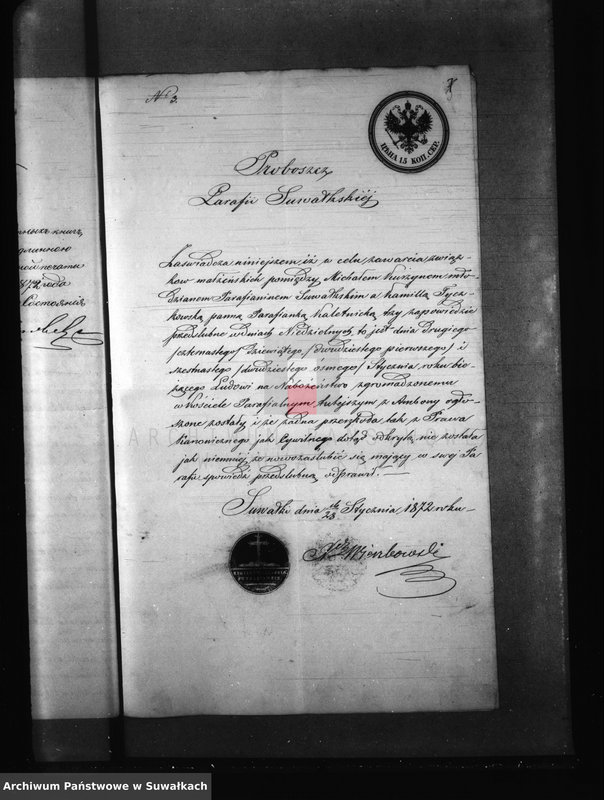 № 3.
ЦѢНА 15 КОП. СЕР.
Proboszcz
Parafii Suwałkskiéj
Zaświadcza niniejszem iż w celu zawarcia związ-
ków małżeńskich pomiędzy Michałem Kurzynem mło-
dzianem Parafianinem Suwałkskim a Kamillą Tycz-
kowską panną Parafianką Kaletnicką trzy zapowiedzie
przedślubne w dniach Niedzielnych to jest dnia Drugiego
/czternastego/ Dziewiątego /dwudziestego pierwszego/ i
szesnastego /dwudziestego ósmego/ Stycznia roku bie-
żącego Ludowi na Nabożeństwo zgromadzonemu
w Kościele Parafialnym tutejszym z Ambony ogło-
szone zostały i że żadna przeszkoda tak z Prawa
Kanonicznego jak Cywilnego dotąd odkrytą nie została
jak niemniéj że nowozaślubić się mający w swéj Pa-
rafii spowiedź przedślubną odprawił.
Suwałki dnia 16/28 Stycznia 1872 roku
Xdz Wierzbowski
ныхъ книгъ,
длинною
ной печати
1872 года
Состоянія
Archiwum Państwowe w Suwałkach